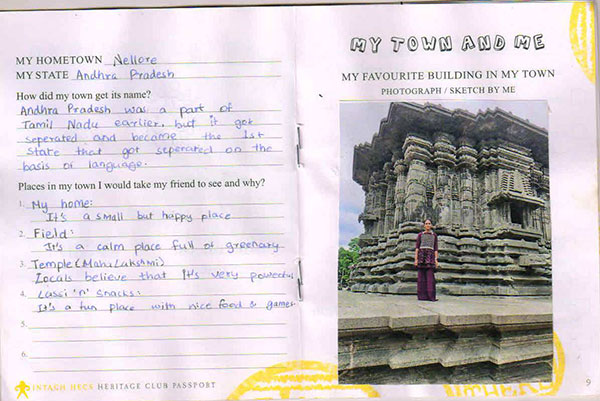 MY HOMETOWN Nellore
MY STATE Andhra Pradesh
How did my town get its name?
Andhra Pradesh was a part of
Tamil Nadu earlier, but it got
seperated and become the 1st
state that got seperated on the
basis of language.
Places in my town I would take my friend to see and why?
1. My home:
It's a small but happy place
2. Field:
It's a calm place full of greenary
3. Temple (Maha Lakshmi)
Locals believe that It's very powerful
4. Lassi 'n' Snacks:
It's a fun place with nice food & games
5.
6.
INTACH HECS HERITAGE CLUB PASSPORT
MY TOWN AND ME
MY FAVOURITE BUILDING IN MY TOWN
PHOTOGRAPH / SKETCH BY ME
9